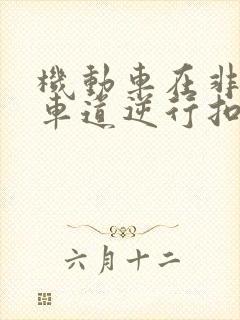 機動車在非
車道逆行扣
六月十二